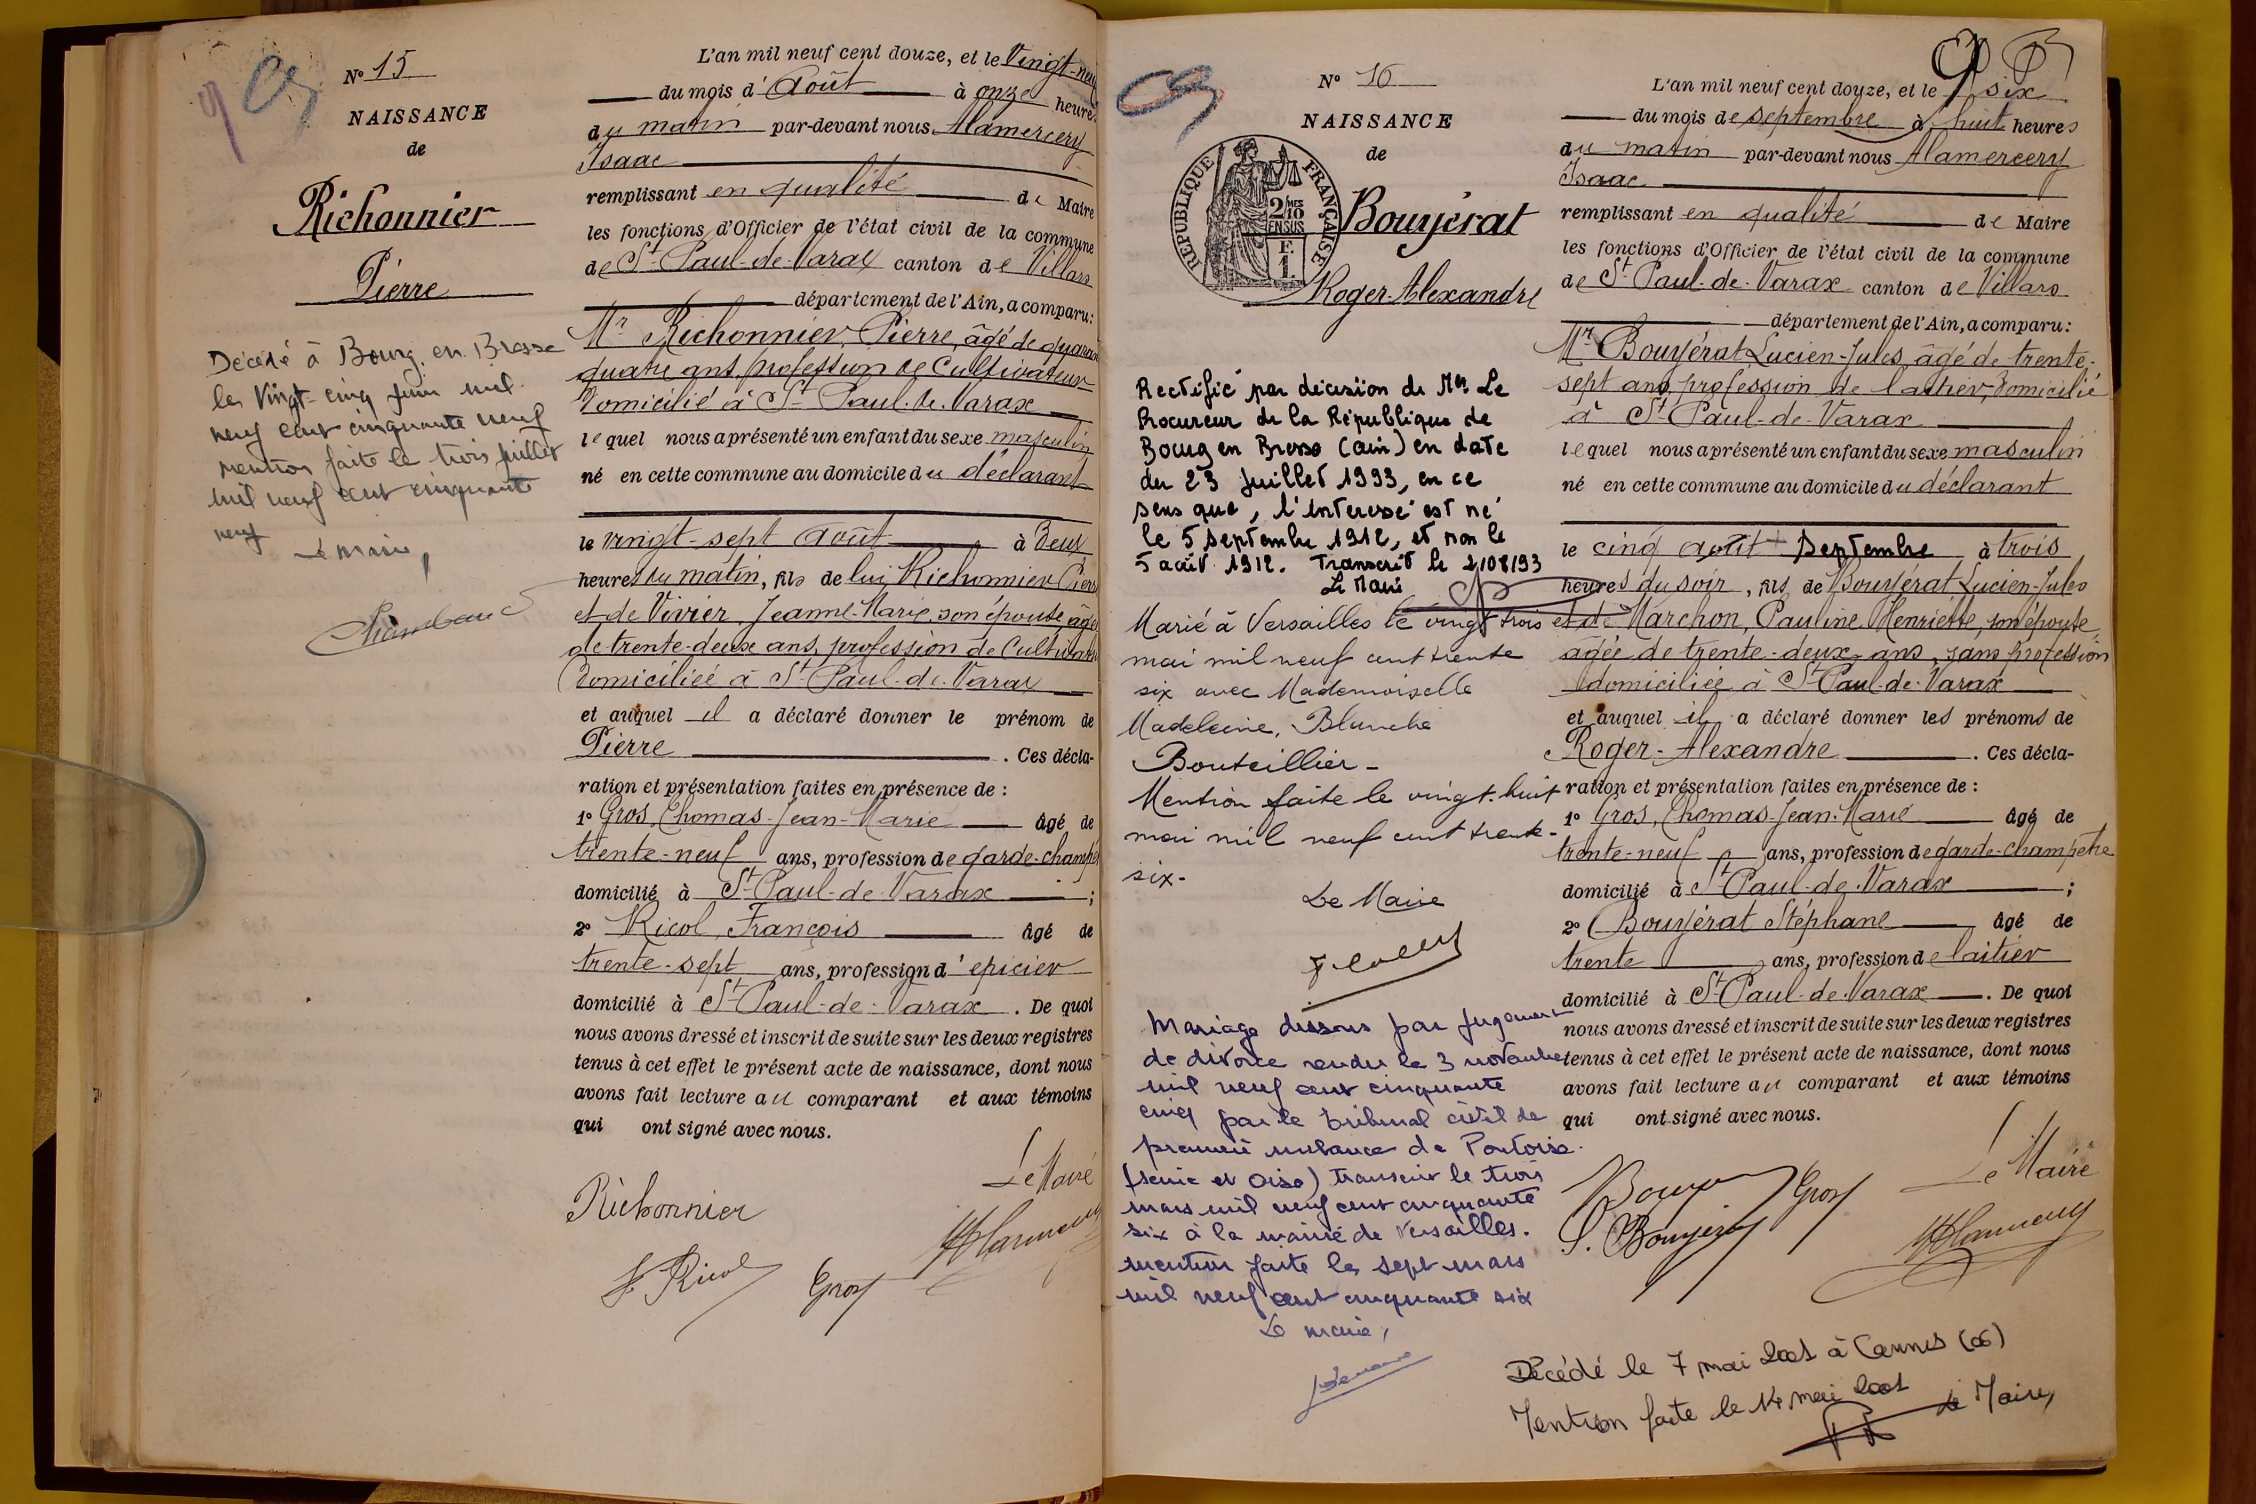 N° 15
NAISSANCE
de
Richonnier
Pierre
Décédé à Bourg. en. Bresse
les Vingt-cinq juin mil
neuf cent cinquante neuf
mention faite le trois juillet
mil neuf cent cinquante
neuf
Le maire,
L'an mil neuf cent douze, et le Vingt-neuf
du mois d'Août à onze heures
du matin par-devant nous Alamercery
Isaac
remplissant en qualité de Maire
les fonctions d'Officier de l'état civil de la commune
de St Paul-de-Varax canton de Villars
département de l'Ain, a comparu:
Mr Richonnier, Pierre, âgé de quarante
quatre ans, profession de Cultivateur
Domicilié à St Paul-de-Varax
lequel nous a présenté un enfant du sexe masculin
né en cette commune au domicile du déclarant
le vingt-sept août à deux
heures du matin, fils de lui, Richonnier Pierre
et de Vivier, Jeanne-Marie, son épouse âgée
de trente-deux ans, profession de Cultivateur
Domiciliée à St Paul-de-Varax
et auquel il a déclaré donner le prénom de
Pierre. Ces décla-
ration et présentation faites en présence de :
1° Gros, Thomas-Jean-Marie âgé de
trente-neuf ans, profession de garde-champê
domicilié à St Paul-de-Varax ;
2° Ricol, François âgé de
trente-sept ans, profession d'epicier
domicilié à St Paul-de-Varax. De quoi
nous avons dressé et inscrit de suite sur les deux registres
tenus à cet effet le présent acte de naissance, dont nous
avons fait lecture au comparant et aux témoins
qui ont signé avec nous.
Le Maire
Richonnier
F. Ricol Gros
N° 16
NAISSANCE
de
RÉPUBLIQUE FRANÇAISE
2/10 MES
EN SUS
F.
1.
Bouyérat
Roger-Alexandre
Rectifié par décision de Mr Le
Procureur de la République de
Bourg en Bresse (ain) en date
du 23 juillet 1993, en ce
sens que, l'interessé est né
le 5 septembre 1912, et non le
5 août 1912. Transcrit le 2/08/93
Le Maire
Marié à Versailles le vingt trois
mai mil neuf cent trente
six avec Mademoiselle
Madeleine, Blanche
Bouteillier -
Mention faite le vingt-huit
mai mil neuf cent trente-
six.
Le Maire
Mariage dissous par jugement
de divorce rendu le 3 novembre
mil neuf cent cinquante
cinq par le tribunal civil de
première instance de Pontoise.
(seine et oise) transcrit le trois
mars mil neuf cent cinquante
six à la mairie de Versailles.
mention faite les sept mars
mil neuf cent cinquante six
Le maire,
L'an mil neuf cent douze, et le six
du mois de septembre à huit heures
du matin par-devant nous Alamercery
Isaac
remplissant en qualité de Maire
les fonctions d'Officier de l'état civil de la commune
de St Paul-de-Varax canton de Villars
département de l'Ain, a comparu:
Mr Bouyérat Lucien-Jules, âgé de trente-
sept ans, profession de laitier, Domicilié
à St Paul-de-Varax
lequel nous a présenté un enfant du sexe masculin
né en cette commune au domicile du déclarant
le cinq août + Septembre à trois
heures du soir, fils de Bouyérat Lucien-Jules
et de Marchon, Pauline Henriette, son épouse
âgée de trente-deux ans, sans profession
domiciliée à St Paul-de-Varax
et auquel il a déclaré donner les prénoms de
Roger-Alexandre. Ces décla-
ration et présentation faites en présence de :
1° Gros, Thomas-Jean-Marie âgé de
trente-neuf ans, profession de garde-champetre
domicilié à St Paul-de-Varax ;
2° Bouyérat Stéphane âgé de
trente ans, profession de laitier
domicilié à St Paul-de-Varax. De quoi
nous avons dressé et inscrit de suite sur les deux registres
tenus à cet effet le présent acte de naissance, dont nous
avons fait lecture au comparant et aux témoins
qui ont signé avec nous.
Le Maire
Gros
S. Bouyérat
Décédé le 7 mai 2001 à Cannes (06)
Mention faite le 14 mai 2001
Le Maire,